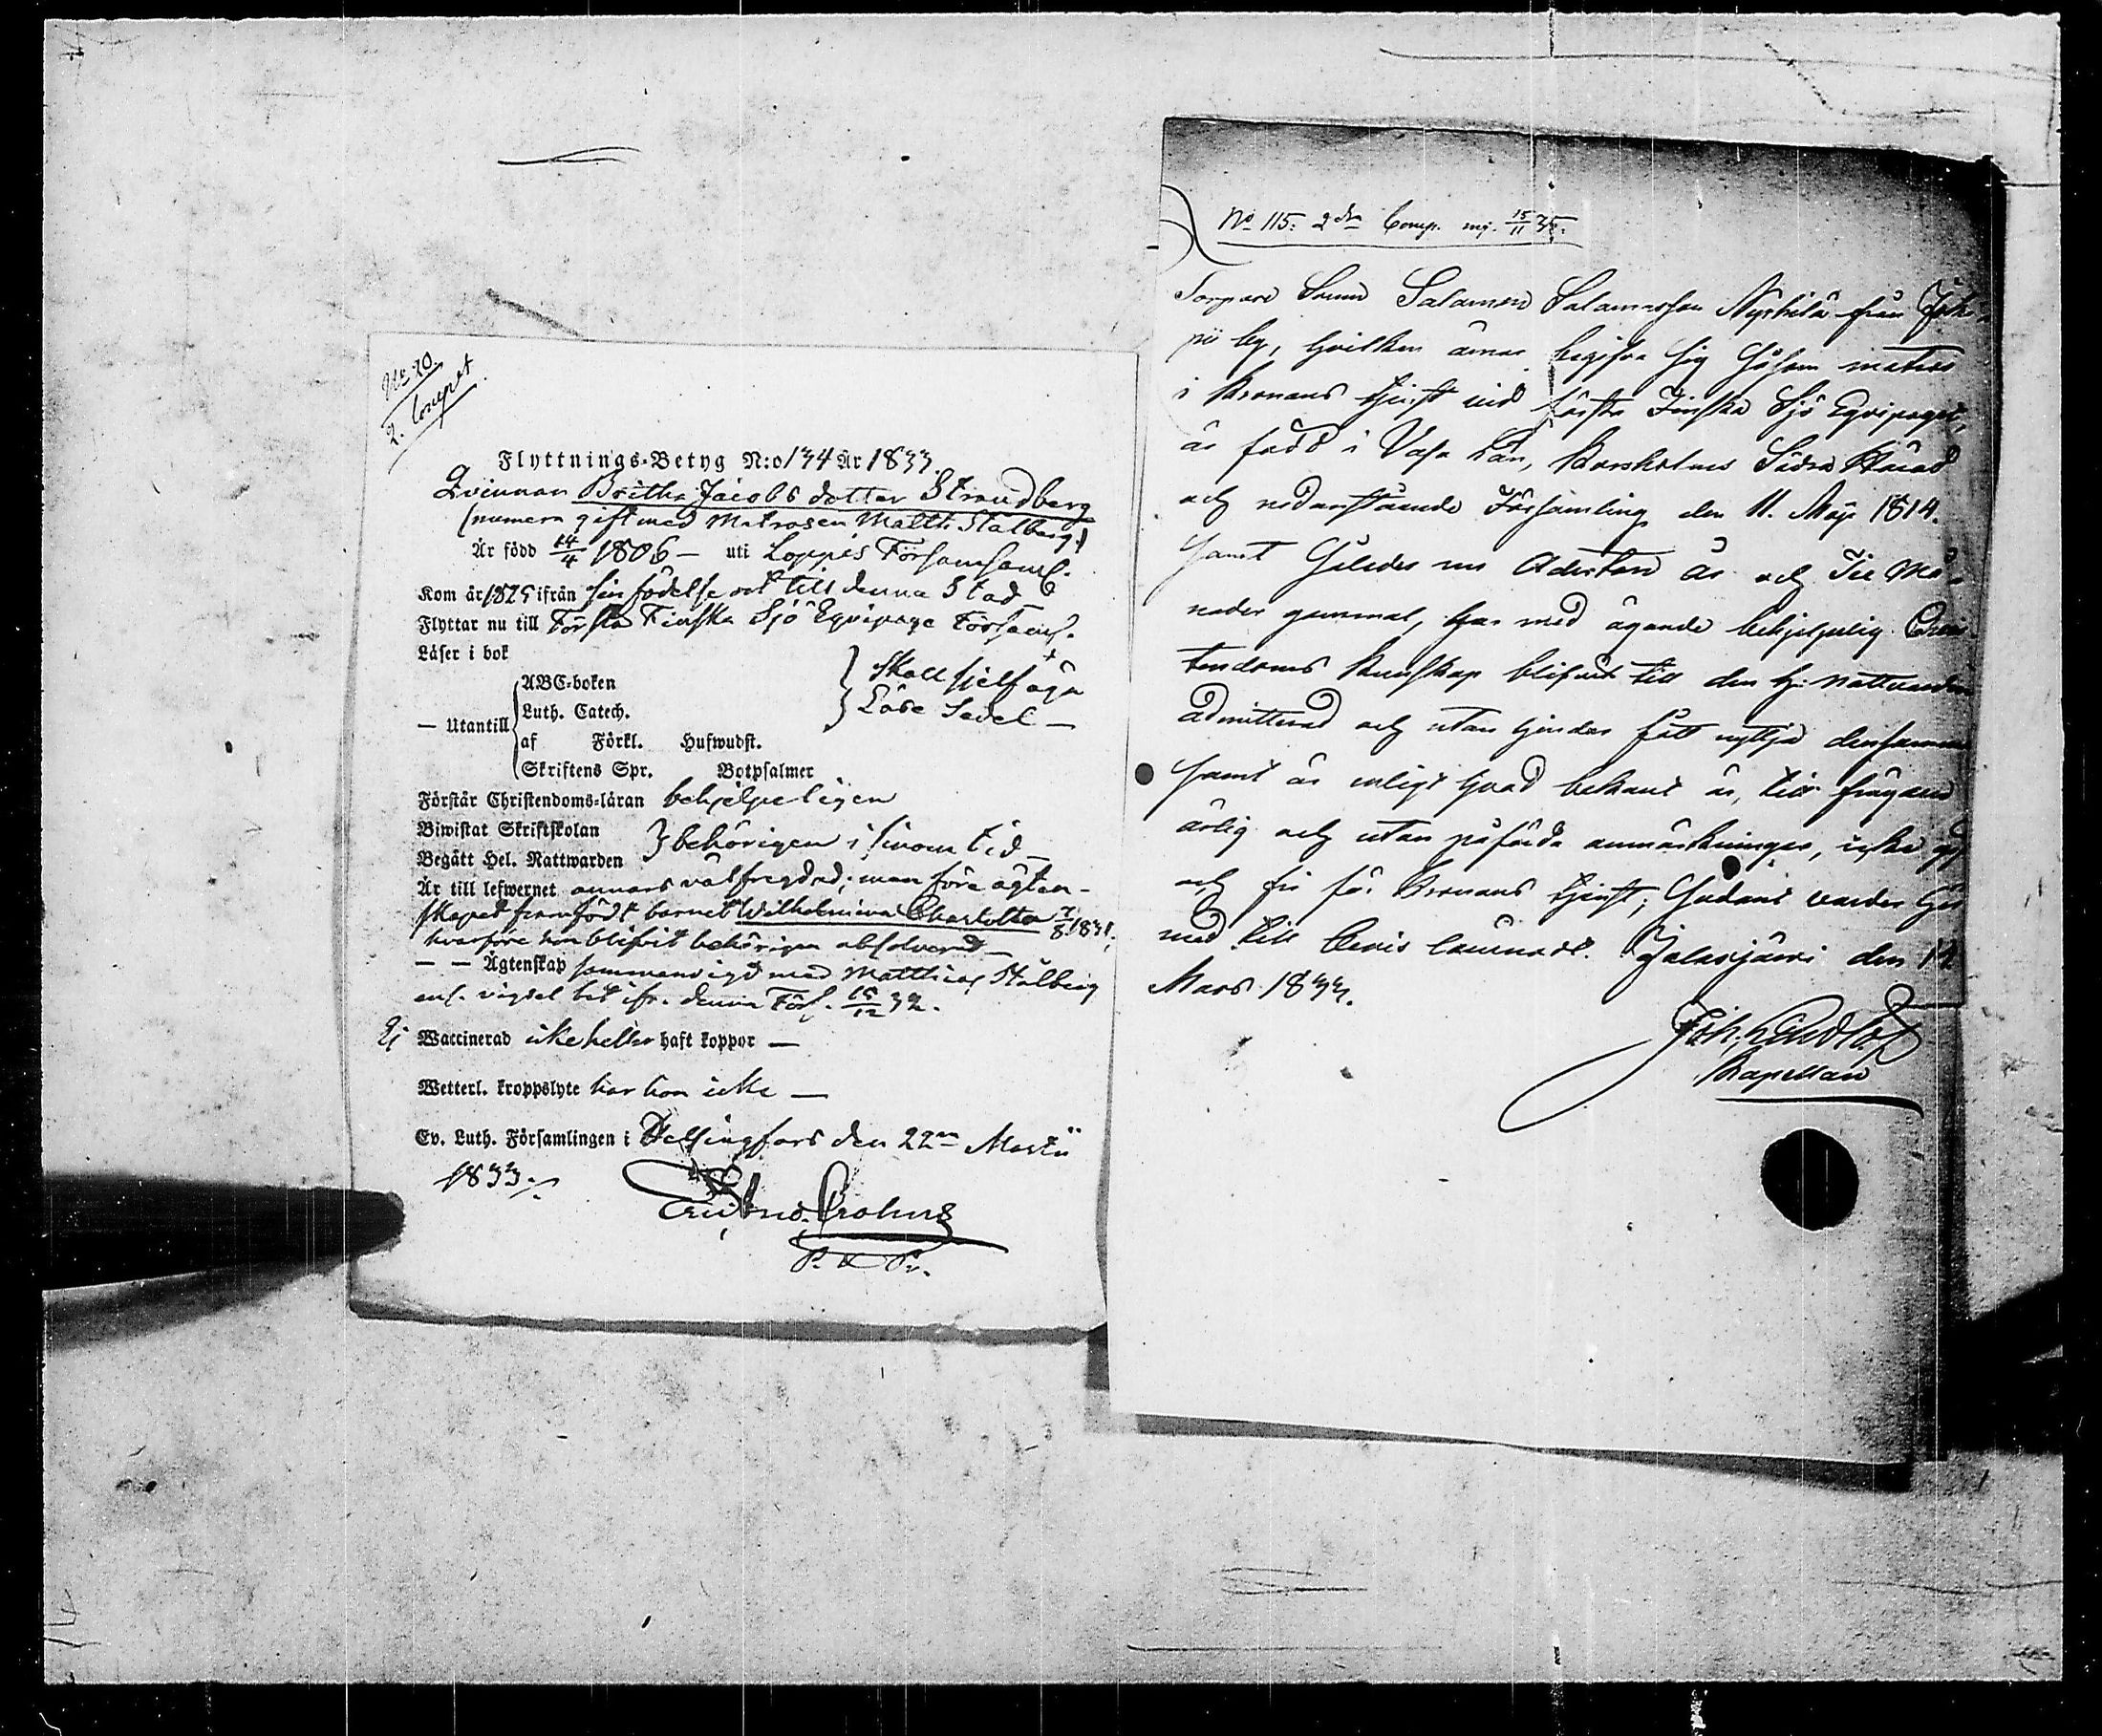 No 20.
2. Compet
Flyttnings-Betyg N:o 134 År 1833.
Qvinnan Britha Jacobsdotter Strandberg
(numera gift med Matrosen Matth. Stålberg)
Är född 14/4 1806 — uti Loppis Församl.
Kom år 1825 ifrån sin födelse ort till denna Stad
Flyttar nu till Första Finska Sjö Eqvipage Församl.
Läser i bok
ABC-boken
— Utantill Luth. Catech.
af Förkl. Hufwudst.
Skriftens Spr. Botpsalmer
} Skall sjelf äga
} Läse Sedel —
Förstår Christendoms-läran behjelpeligen
Biwistat Skriftskolan
Begått Hel. Nattwarden } behörigen i sinom tid —
Är till lefwernet annars välfregdad; men före ägten-
skapet framfödt barnet Wilhelmina Charlotta 7/8 1831,
hvarföre hon blifvit behörigen absolverad —
— — Ägtenskap sammanvigd med Matthias Stålberg
enl. vigsel bet. ifr. denna Förs. 15/12 32.
Ej Waccinerad icke heller haft koppor —
Wetterl. kroppslyte har hon icke —
Ev. Luth. Församlingen i Helsingfors den 22 Martii
1833.
Crohns
P. & Pr.
No 115. 2dra Comp. 15/11 35.
Torpare Sonen Salomon Salomonsson Nyrhilä från Joki-
pii by, hvilken ärnar begifva sig såsom matros
i Kronans tjenst vid första Finska Sjö Eqvipaget,
är född i Vasa Län, Korsholms Södra Härad
och nedanstående Församling den 11. Maji 1814.
samt således nu Aderton år och Tie Må-
nader gammal, har med ägande behjelpelig Chris-
tendoms kunskap blifvit till den h. Nattvarden
admitterad och utan hinder fått nyttja densamma
samt är enligt hvad bekant är, till frägden
ärlig och utan påförda anmärkningar, icke gift
och fri för Kronans tjenst; sådant varder här
med till bevis lämnadt. Jalasjärvi den 12
Mars 1833.
Joh.
Kapellan